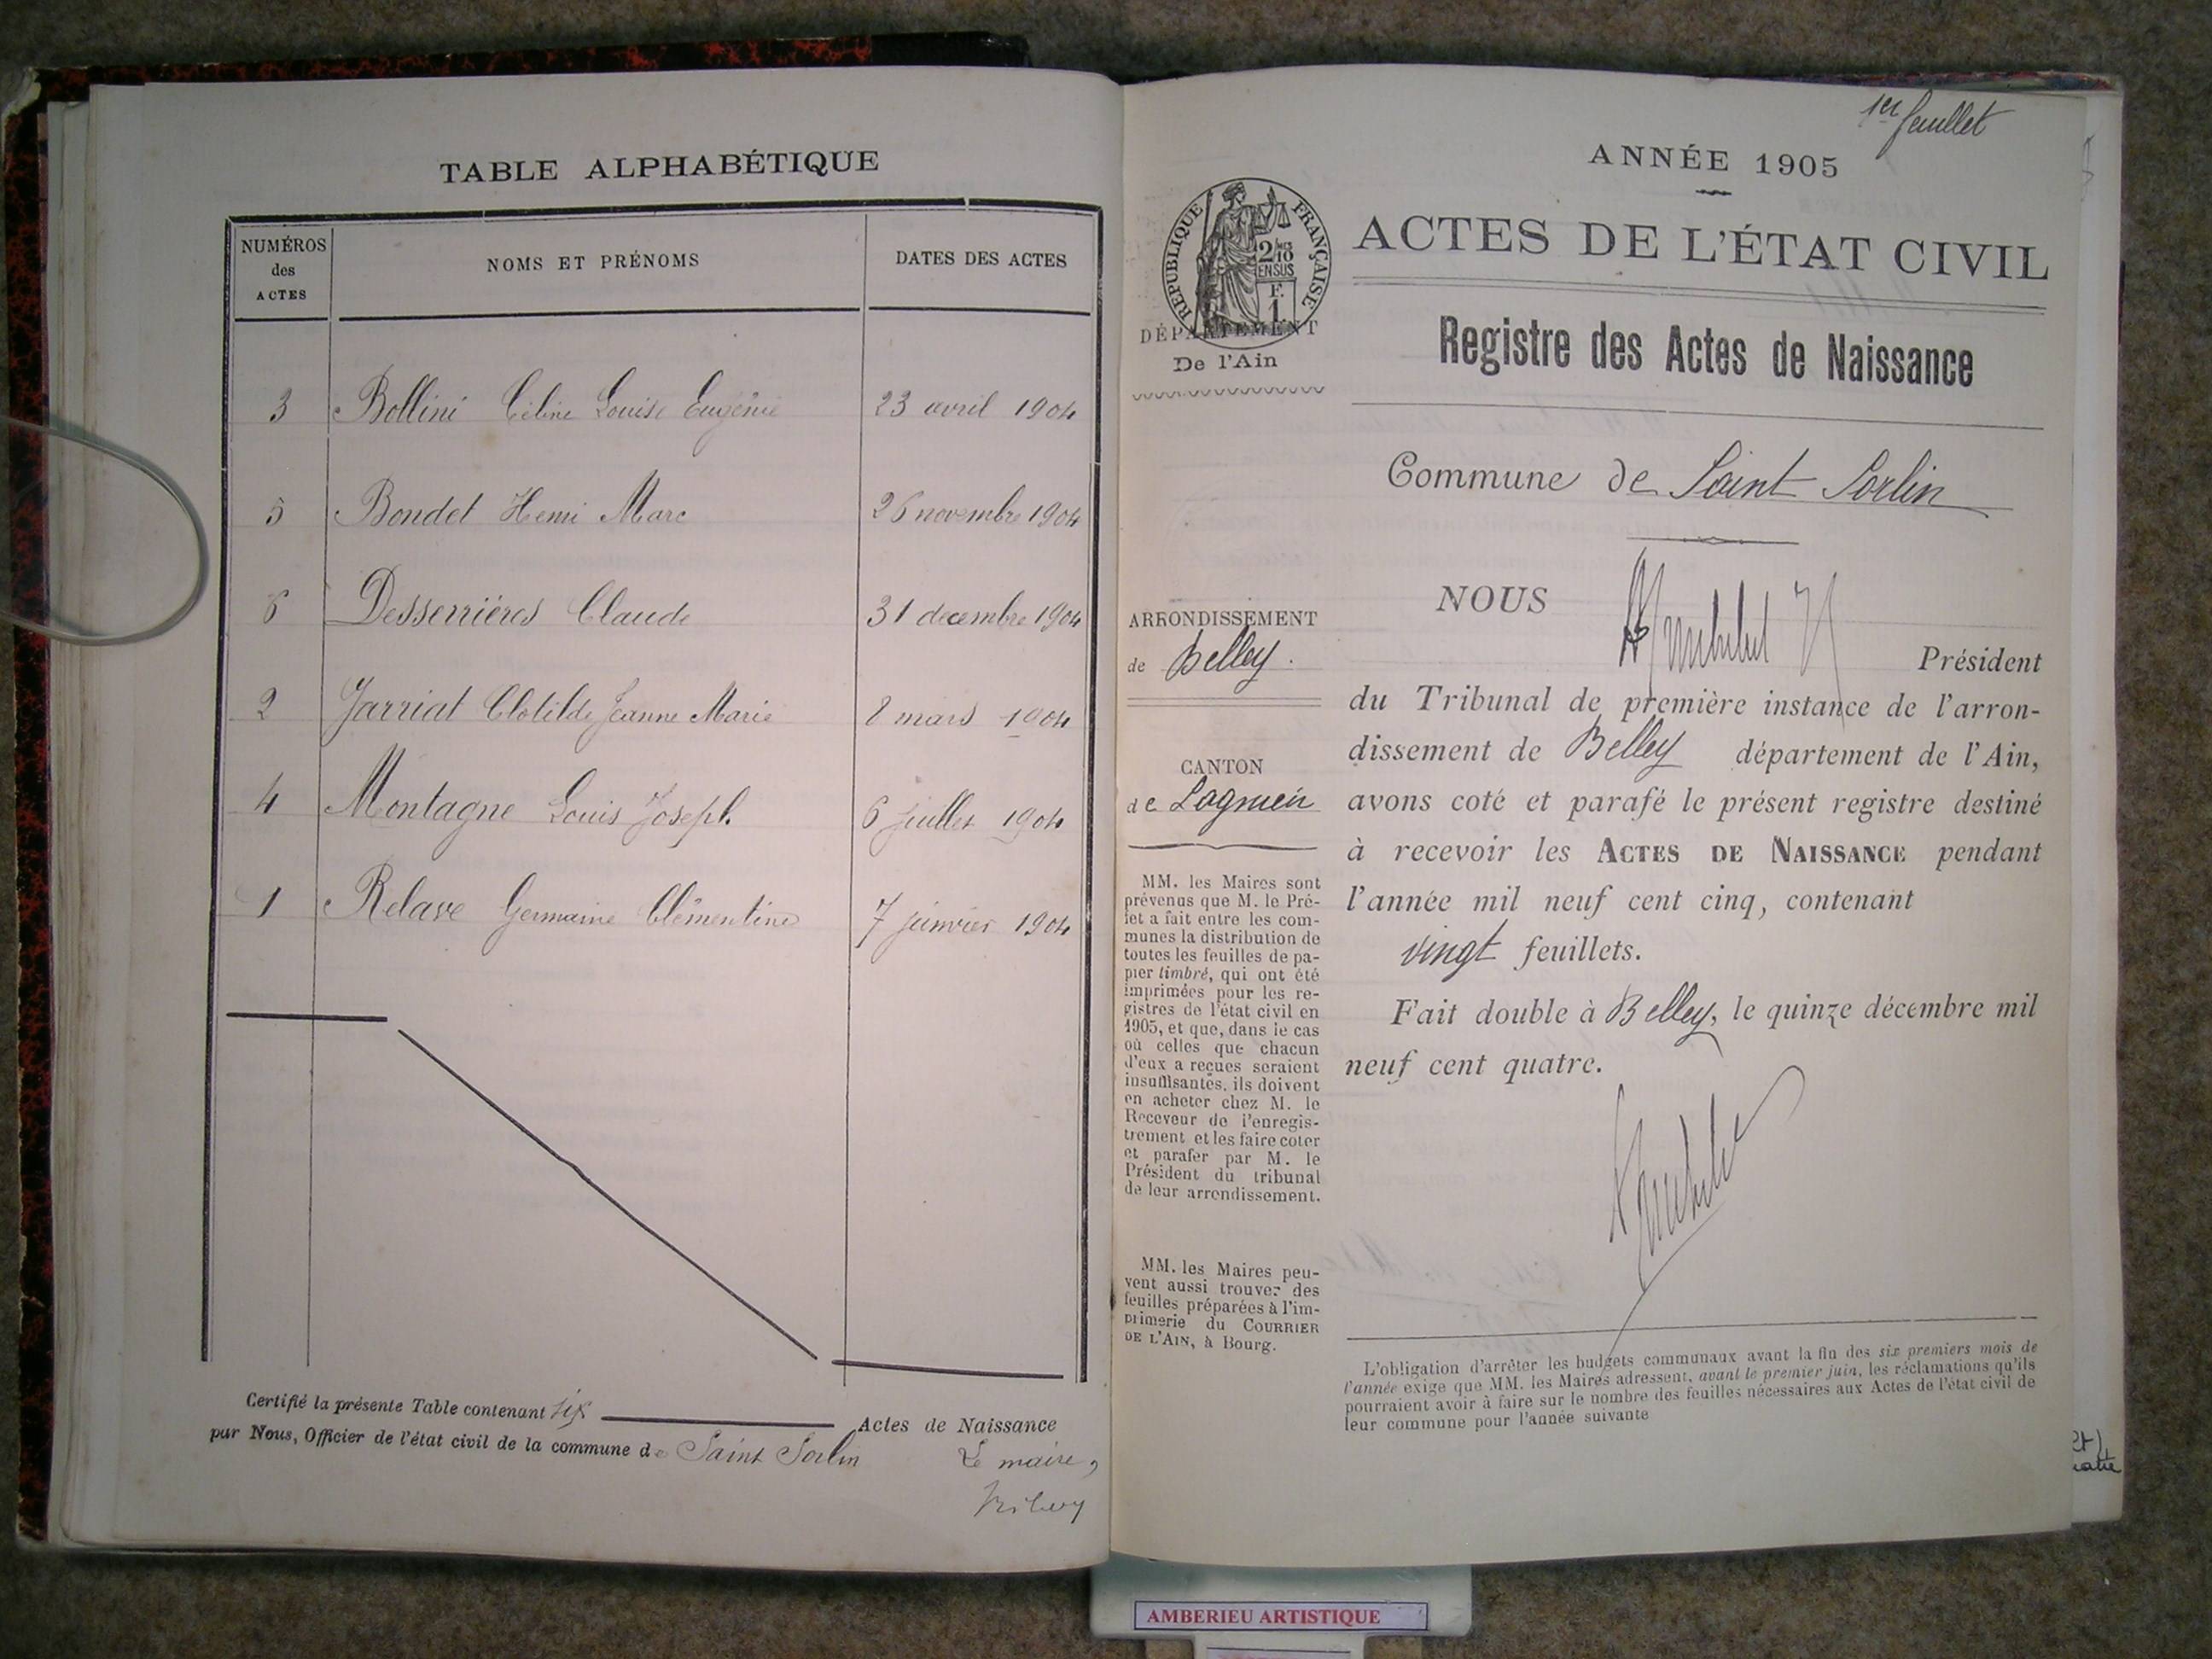 TABLE ALPHABÉTIQUE
NUMÉROS des ACTES NOMS ET PRÉNOMS DATES DES ACTES
3 Bollini Céline Louise Eugénie 23 avril 1904
5 Bondet Henri Marc 26 novembre 1904
6 Desserrières Claude 31 décembre 1904
2 Jarriat Clotilde Jeanne Marie 8 mars 1904
4 Montagne Louis Joseph 6 juillet 1904
1 Relave Germaine Clémentine 7 janvier 1904
Certifié la présente Table contenant six Actes de Naissance
par Nous, Officier de l'état civil de la commune de Saint Sorlin
Le maire,
1er feuillet
ANNÉE 1905
ACTES DE L'ÉTAT CIVIL
Registre des Actes de Naissance
RÉPUBLIQUE FRANÇAISE
2/10
EN SUS
F.
1.
DÉPARTEMENT
De l'Ain
Commune de Saint Sorlin
ARRONDISSEMENT
de Belley.
CANTON
de Lagnieu
MM. les Maires sont
prévenus que M. le Pré-
fet a fait entre les com-
munes la distribution de
toutes les feuilles de pa-
pier timbré, qui ont été
imprimées pour les re-
gistres de l'état civil en
1905, et que, dans le cas
où celles que chacun
d'eux a reçues seraient
insuffisantes, ils doivent
en acheter chez M. le
Receveur de l'enregis-
trement et les faire coter
et parafer par M. le
Président du tribunal
de leur arrondissement.
MM. les Maires peu-
vent aussi trouver des
feuilles préparées à l'im-
primerie du COURRIER
DE L'AIN, à Bourg.
NOUS
Président
du Tribunal de première instance de l'arron-
dissement de Belley département de l'Ain,
avons coté et parafé le présent registre destiné
à recevoir les ACTES DE NAISSANCE pendant
l'année mil neuf cent cinq, contenant
vingt feuillets.
Fait double à Belley, le quinze décembre mil
neuf cent quatre.
L'obligation d'arrêter les budgets communaux avant la fin des six premiers mois de
l'année exige que MM. les Maires adressent, avant le premier juin, les réclamations qu'ils
pourraient avoir à faire sur le nombre des feuilles nécessaires aux Actes de l'état civil de
leur commune pour l'année suivante
AMBERIEU ARTISTIQUE